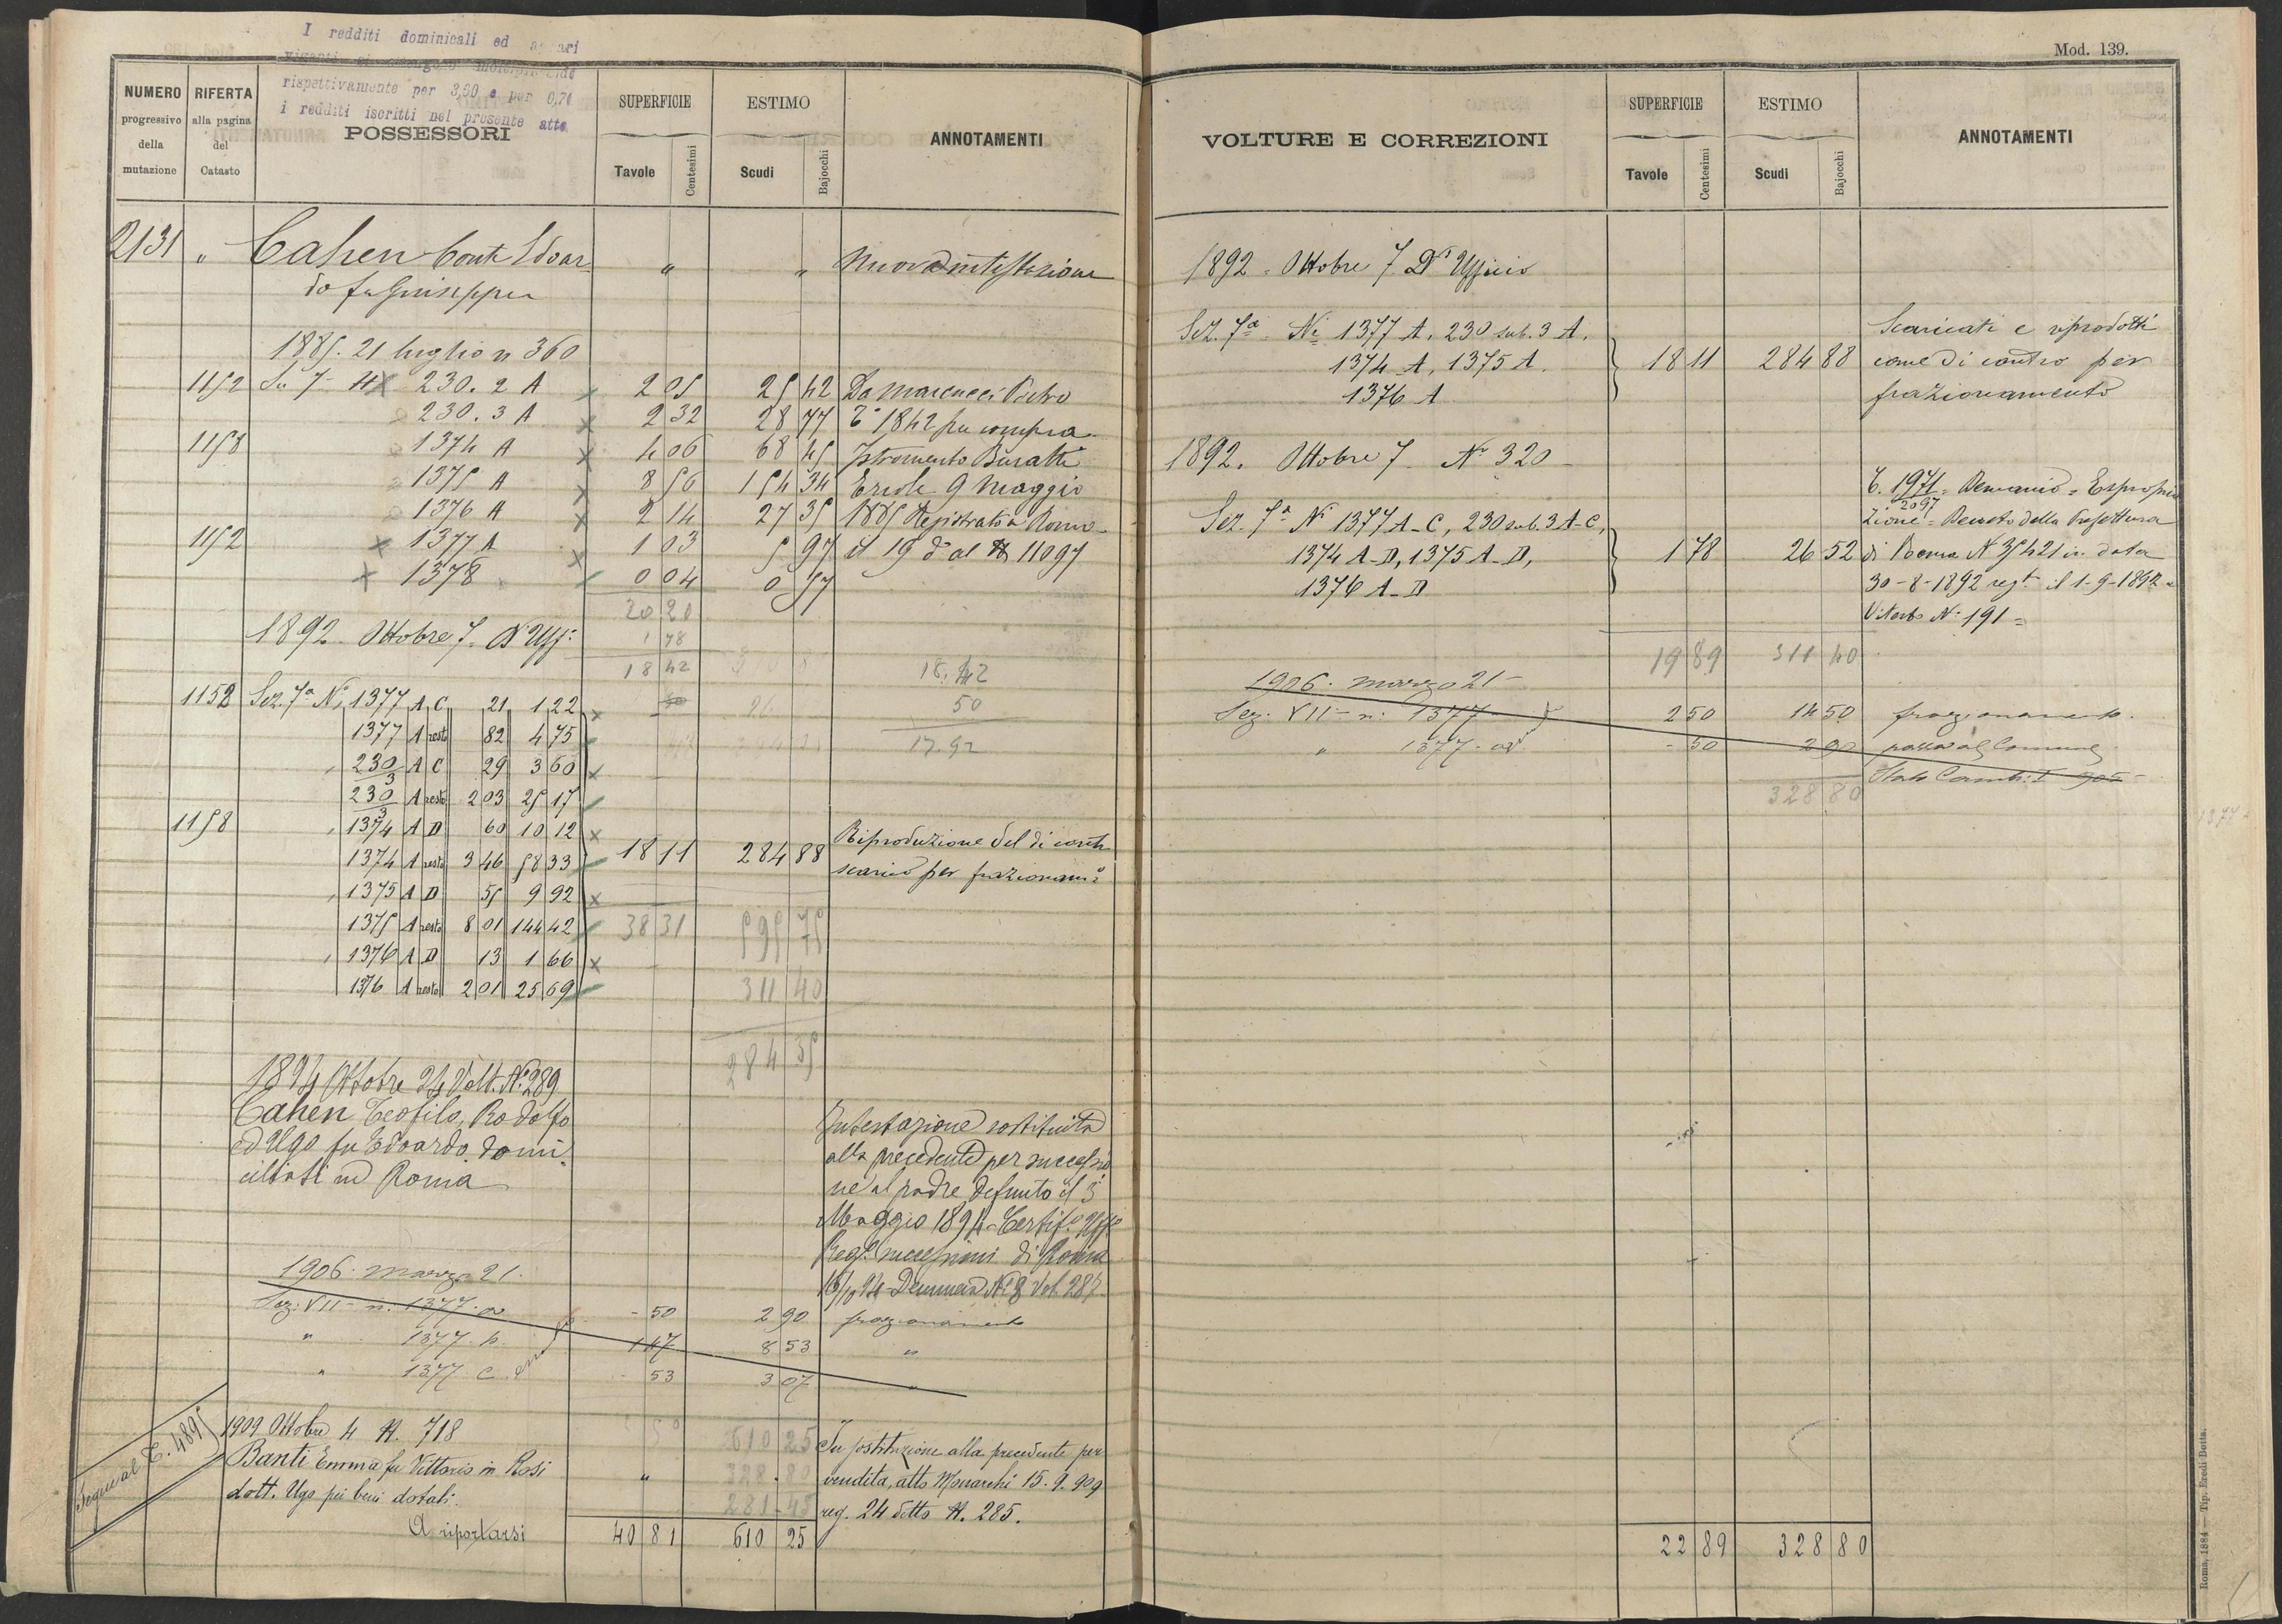 I redditi dominicali ed agrari
rispettivamente per 3,90 e per 0,70
i redditi iscritti nel presente atto
NUMERO progressivo della mutazione
RIFERTA alla pagina del Catasto
POSSESSORI
SUPERFICIE
Tavole Centesimi
ESTIMO
Scudi Bajocchi
ANNOTAMENTI
2131 " Cahen Conte Edoar- " " Nuova intestazione
do fu Giuseppe
1885. 21 luglio n 360
1152 230. 2 A 2 05 25 42 Da Marcucci Pietro
230. 3 A 2 32 28 77 1842 per compra
1158 1374 A 4 06 68 45 Istromento Buratti
1375 A 8 56 154 34 Ercole 9 Maggio
1376 A 2 14 27 35 1885 Registrato a Roma
1152 1377 A 1 03 5 97 il 19 d° al N 11097
1378 0 04 0 57
20 20
1892 Ottobre 7. D'Uff:
1 78
18 42 18.42
1152 Sez. 7a No 1377 A C 21 1 22 50
1377 A resto 82 4 75 17.92
230/3 A C 29 3 60
230/3 A resto 2 03 25 17
1158 1374 A D 60 10 12
1374 A resto 3 46 58 33 18 11 284 88 Riproduzione del di contro
scarico per frazionam°
1375 A D 55 9 92
1375 A resto 8 01 144 42 38 31 595 75
1376 A D 13 1 66
1376 A resto 2 01 25 69 311 40
284 35
1894 Ottobre 24 Volt. N° 289
Cahen Teofilo, Rodolfo
ed Ugo fu Edoardo domi-
ciliati in Roma
Intestazione sostituita
alla precedente per successio
ne al padre defunto il 3
Maggio 1894 - Certif° Uff°
Reg° successioni di Roma
Denuncia N° 8 Vol. 287
1906. marzo 21.
Sez. VII - n. 1377. a - 50 2 90 frazionamento
" 1377. b. 1 47 8 53 "
" 1377. c - 53 3 07 "
Segue al T. 4895
1909 Ottobre 4 N. 718 610 25 In sostituzione alla precedente per
Banti Emma fu Vittorio in Rosi " 328.80 vendita, atto Monarchi 15.9.909
dott. Ugo pei beni dotali. 281.45 reg. 24 detto N. 285.
A riportarsi 40 81 610 25
Mod. 139.
VOLTURE E CORREZIONI
SUPERFICIE
Tavole Centesimi
ESTIMO
Scudi Bajocchi
ANNOTAMENTI
1892 - Ottobre 7 D'Ufficio
Sez. 7a No 1377 A, 230 sub. 3 A, Scaricati e riprodotti
1374 A, 1375 A. 18 11 284 88 come di contro per
1376 A frazionamento
1892. Ottobre 7 - No 320 -
T. 1971/2097 = Demanio = Espropria
Sez. 7a No 1377 A-C, 230 sub. 3 A-C, zione = Decreto della Prefettura
1374 A-D, 1375 A-D, 1 78 26 52 di Roma N 35421 in data
1376 A-D 30-8-1892 regto il 1-9-1892 a
Viterbo No 191 =
19 89 311 40
1906. marzo 21 -
Sez. VII - n. 1377 2 50 14 50 frazionamento.
" 1377. a - 50 2 90 passa al Comune
Stato Camb: I 905 -
328 80
1377
22 89 328 80
Roma, 1884 — Tip. Eredi Botta.